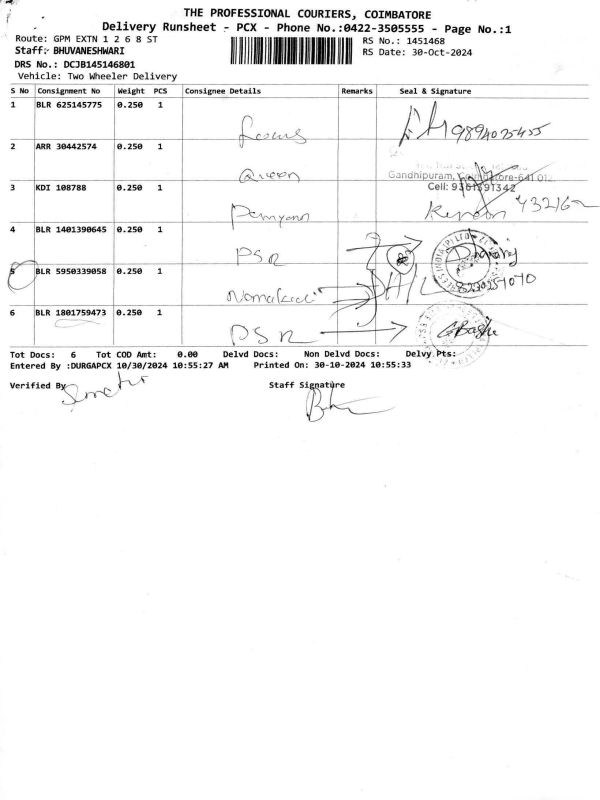 THE PROFESSIONAL COURIERS, COIMBATORE
Delivery Runsheet - PCX - Phone No.:0422-3505555 - Page No.:1
Route: GPM EXTN 1 2 6 8 ST
RS No.: 1451468
Staff:- BHUVANESHWARI
RS Date: 30-Oct-2024
DRS No.: DCJB145146801
Vehicle: Two Wheeler Delivery
S No Consignment No Weight PCS Consignee Details Remarks Seal & Signature
1 BLR 625145775 0.250 1
9894025455
2 ARR 30442574 0.250 1
Queen
Gandhipuram, Coimbatore-641 012.
Cell: 9361591342
3 KDI 108788 0.250 1
4 BLR 1401390645 0.250 1
PSR
5 BLR 5950339058 0.250 1
6 BLR 1801759473 0.250 1
PSR
Tot Docs: 6 Tot COD Amt: 0.00 Delvd Docs: Non Delvd Docs: Delvy Pts:
Entered By :DURGAPCX 10/30/2024 10:55:27 AM Printed On: 30-10-2024 10:55:33
Verified By
Staff Signature